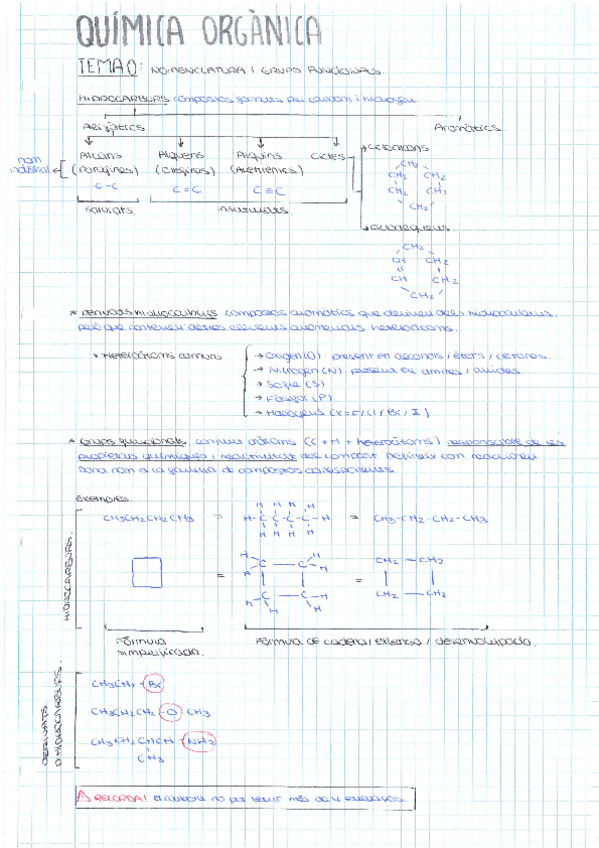 QUÍMICA ORGÀNICA
TEMA 0: NOMENCLATURA I GRUPS FUNCIONALS
HIDROCARBURS compostos formats per carboni i hidrogen
Alifàtics
Aromàtics
nom industrial
Alcans Alquens Alquins Cicles
(Parafines) (Olefines) (Acetilènics)
C-C C=C C≡C
Saturats. Insaturats.
Cicloalcans
CH2
CH2 CH2
CH2 CH2
CH2
Cicloalquens
CH2
CH CH2
CH CH2
CH2
* Derivats hidrocarburs compostos aromàtics que deriven dels hidrocarburs,
però que contenen altres elements anomenats heteroàtoms.
Heteroàtoms comuns
→ Oxigen (O): present en alcohols / èters / cetones.
→ Nitrogen (N): present en amines / amides.
→ Sofre (S)
→ Fòsfor (P)
→ Halògens (X = F / Cl / Br / I)
* Grups funcionals conjunt d'àtoms (C + H + heteroàtoms) responsable de les
propietats químiques i reactivitat del compost. Defineix com reaccionen
Dona nom a la família de compostos corresponents.
Exemples.
HIDROCARBURS.
CH3CH2CH2CH3 =
H H H H
H-C-C-C-C-H
H H H H
= CH3-CH2-CH2-CH3
=
H H
C — C - H
C — C - H
H H
=
CH2 — CH2
CH2 — CH2
Fórmula
simplificada.
Fórmula de cadena / extensa / desenvolupada.
DERIVATS
D'HIDROCARBURS.
CH3CH2-Br
CH3CH2CH2-O-CH3
CH3CH2CHCH-NH2
CH3
⚠ RECORDA! el carboni no pot tenir més de 4 enllaços.